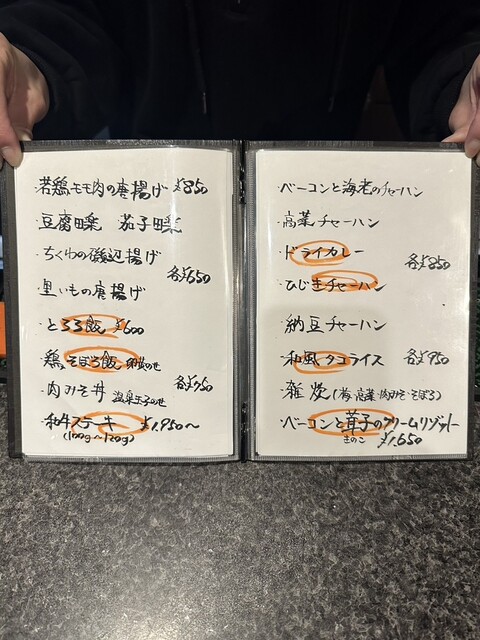 ・若鶏モモ肉の唐揚げ ¥850
・豆腐田楽 茄子田楽
・ちくわの磯辺揚げ
各¥650
・里いもの唐揚げ
・とろろ飯 ¥600
・鶏そぼろ飯
・肉みそ丼 温泉玉子のせ 各¥750
・和牛ステーキ ¥1,950〜
(100g〜120g)
・ベーコンと海老のチャーハン
・高菜チャーハン
・ドライカレー
各¥850
・ひじきチャーハン
・納豆チャーハン
・和風タコライス 各¥950
・雑炊(梅・高菜・肉みそ・そぼろ)
・ベーコンと茸子のクリームリゾット
きのこ ¥1,650